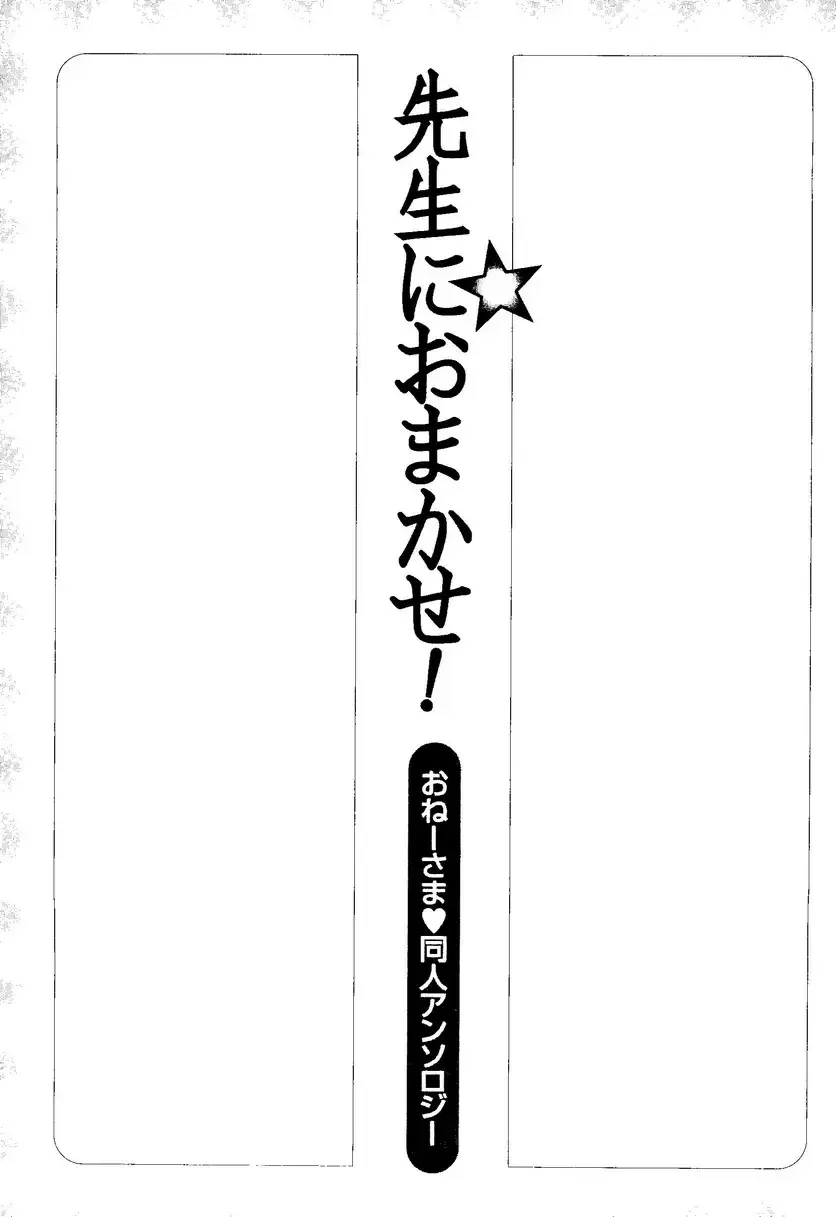 先生におまかせ！
おねーさま♥同人アンソロジー